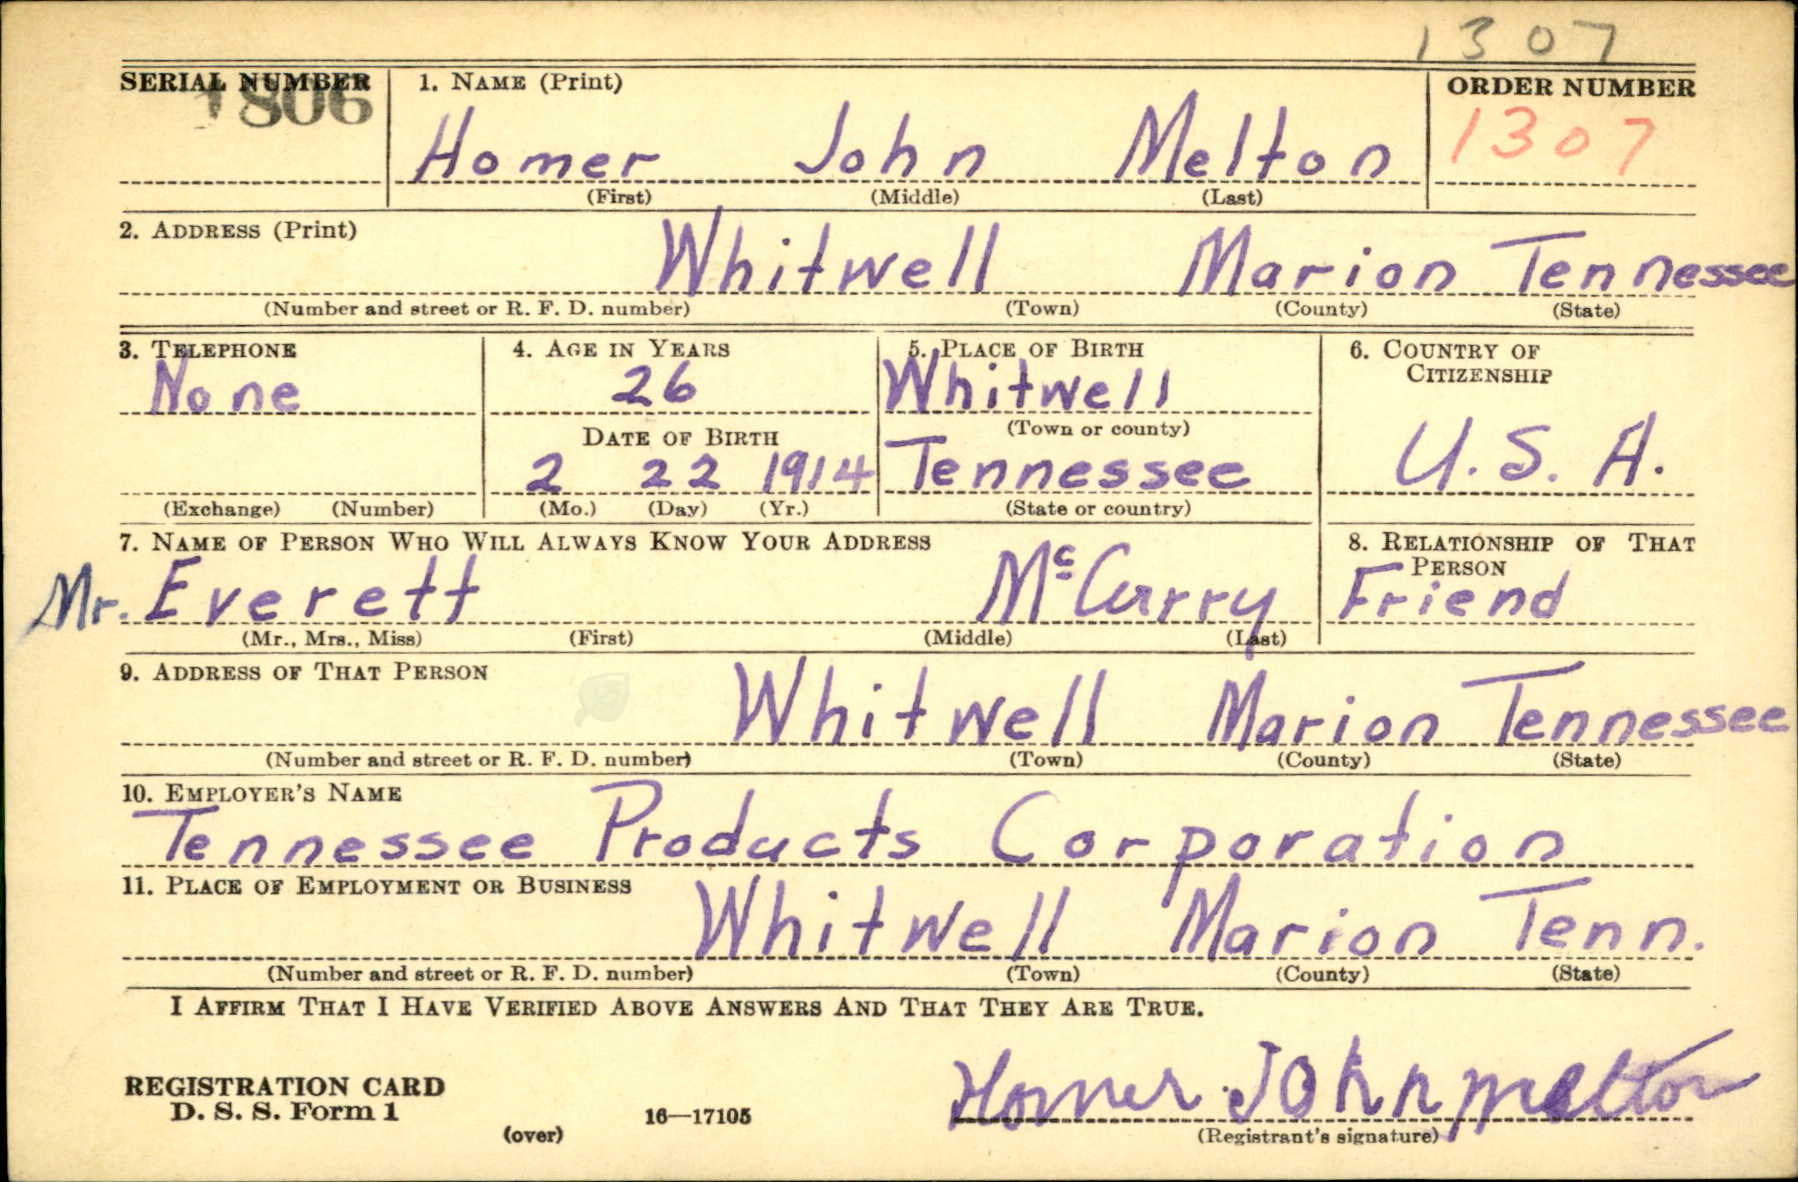 1307
SERIAL NUMBER
1806
1. NAME (Print)
ORDER NUMBER
Homer John Melton
1307
(First) (Middle) (Last)
2. ADDRESS (Print)
Whitwell Marion Tennessee
(Number and street or R. F. D. number) (Town) (County) (State)
3. TELEPHONE
None
(Exchange) (Number)
4. AGE IN YEARS
26
DATE OF BIRTH
2 22 1914
(Mo.) (Day) (Yr.)
5. PLACE OF BIRTH
Whitwell
(Town or county)
Tennessee
(State or country)
6. COUNTRY OF
CITIZENSHIP
U. S. A.
7. NAME OF PERSON WHO WILL ALWAYS KNOW YOUR ADDRESS
Mr. Everett McCurry
(Mr., Mrs., Miss) (First) (Middle) (Last)
8. RELATIONSHIP OF THAT
PERSON
Friend
9. ADDRESS OF THAT PERSON
Whitwell Marion Tennessee
(Number and street or R. F. D. number) (Town) (County) (State)
10. EMPLOYER'S NAME
Tennessee Products Corporation
11. PLACE OF EMPLOYMENT OR BUSINESS
Whitwell Marion Tenn.
(Number and street or R. F. D. number) (Town) (County) (State)
I AFFIRM THAT I HAVE VERIFIED ABOVE ANSWERS AND THAT THEY ARE TRUE.
REGISTRATION CARD
D. S. S. Form 1
(over)
16—17105
Homer John Melton
(Registrant's signature)